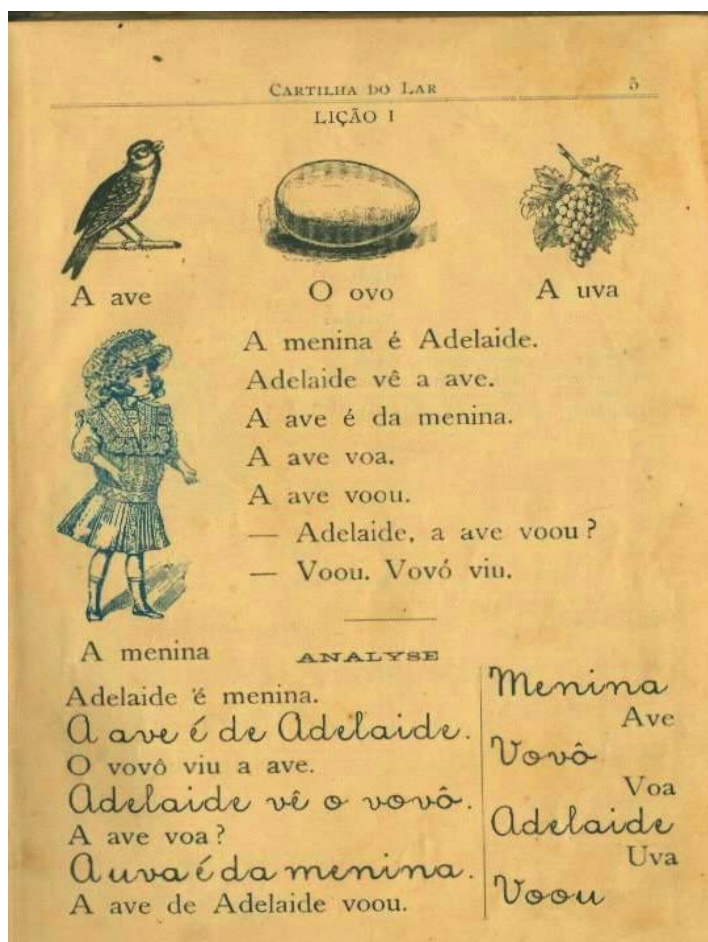 CARTILHA DO LAR 5
LIÇÃO I
A ave
O ovo
A uva
A menina é Adelaide.
Adelaide vê a ave.
A ave é da menina.
A ave voa.
A ave voou.
— Adelaide, a ave voou?
— Voou. Vovó viu.
A menina
ANALYSE
Adelaide é menina.
A ave é de Adelaide.
O vovô viu a ave.
Adelaide vê o vovô.
A ave voa?
A uva é da menina.
A ave de Adelaide voou.
Menina
Ave
Vovô
Voa
Adelaide
Uva
Voou